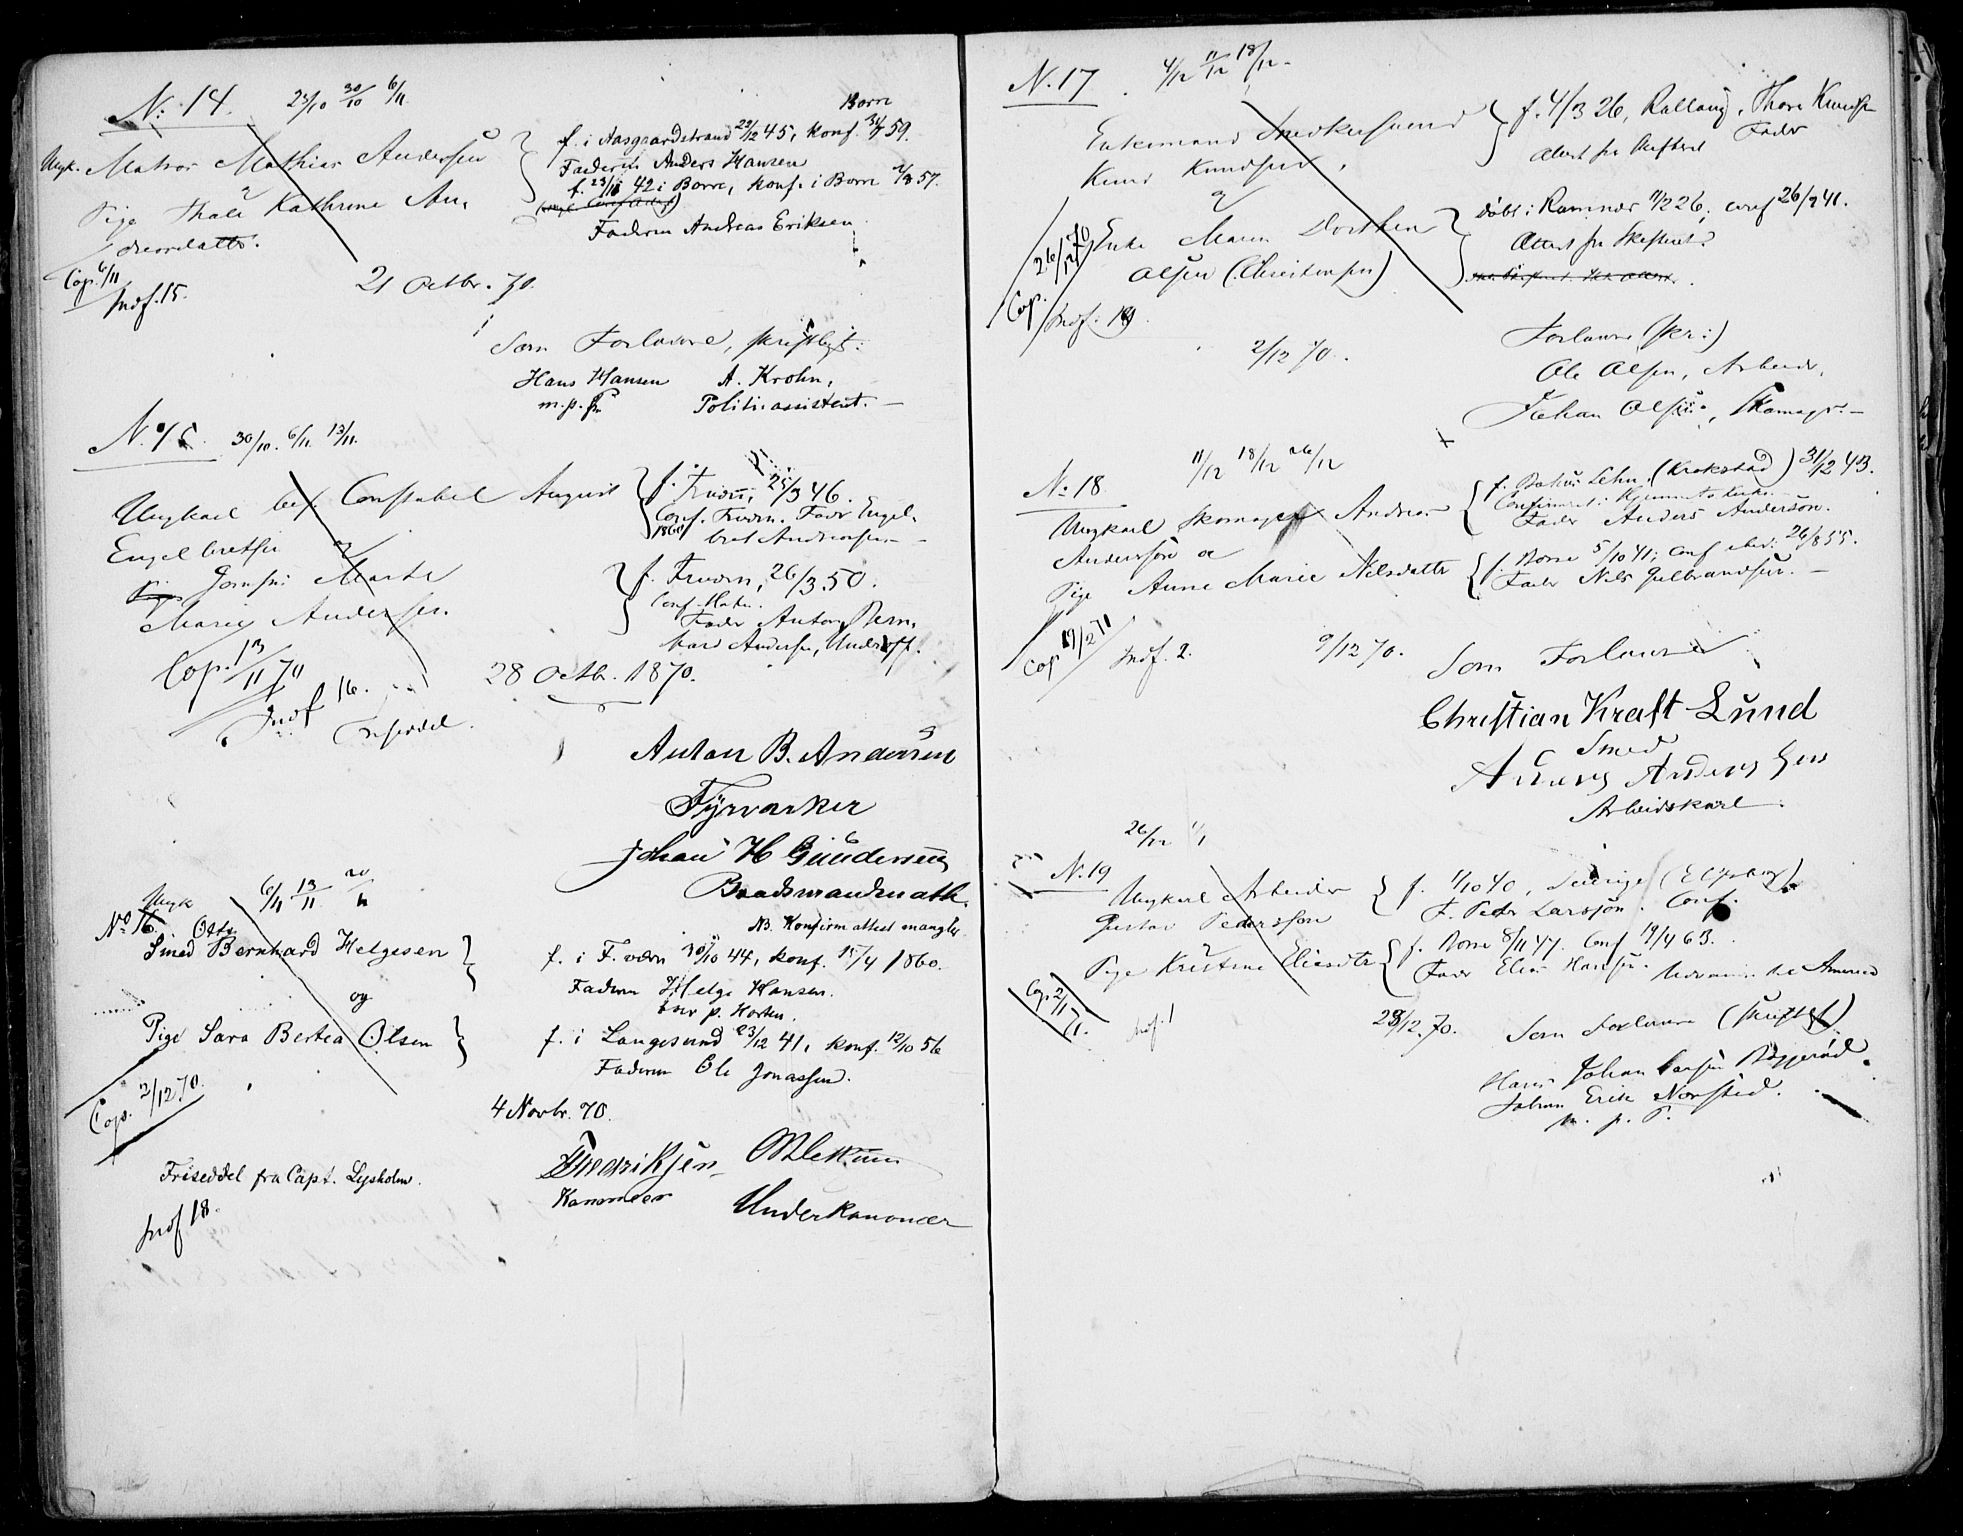 No. 14. 23/10 30/10 6/11
Borre
Ungk. Matros Mathias Andersen
f. i Aasgaardstrand 29/12 45, konf. 59.
Faderen Anders Hansen
f. 23/11 42 i Borre, konf. i Borre 57.
Pige Thale Kathrine An-
dreasdatter.
Faderen Andreas Eriksen
Cop. 6/11
Indf. 15.
21 Octbr. 70.
Som Forlovere, skriftligt:
Hans Hansen A. Krohn,
m.p.P. Politiassistent.
N. 15. 30/10. 6/11 13/11
Ungkarl Constabel August
Engelbretsen
f. Fredr., 25/3 46.
Conf. Fredrv. Fader Engel-
1860
bret Andreasen
Jomfru Marthe
Marie Andersen.
f. Fredrv., 26/3 50.
Conf.
Fader Anton Bern-
hard Andersen, Underoff.
Cop. 13/11 70
Indf 16.
Friseddel.
28 Octb. 1870.
Anton B. Andersen
Fyrverker
Johan H Gundersen
Baadsmandsmath
NB. Konfirmattest mangler
Ungk 6/11 13/11 20/11
No 16. Otto
Smed Bernhard Helgesen
f. i F. værn 30/10 44, konf. 15/4 1860.
Faderen Helge Hansen.
boer p. Horten.
og
Pige Sara Bertea Olsen
f. i Langesund 23/12 41, konf. 12/10 56
Faderen Ole Jonassen.
Cop. 2/12 70.
4 Novbr. 70.
Fredriksen
Kanoneer Underkanoneer
Friseddel fra Capt. Lysholm.
Indf 18.
N. 17 4/12 11/12 18/12
Enkemand Snedkersvend
Knud Knudsen,
f. 4/3 26, Rollaug, Thore Knudsen
Fader
Attest fra Skifteret
&
Enke Maren Dorthea
Olsen (Christensen)
døbt i Ramnæs 11/2 26, conf 26/9 41.
Attest fra Skifteret
26/12 70
Cop.
Indf. 19.
2/12 70.
Forlovere (skr:)
Ole Olsen, Arbeider,
Johan Olsen, Skomager.
No 18 11/12 18/12 26/12
Ungkarl Skomager Andreas
Andersson og
f. (Krokstad) 31/12 43.
Confirmeret i
Fader Anders Anderson.
Pige Anne Marie Nilsdatter
f. Borre 5/10 41; Conf 26/8 55.
Fader Nils Gulbrandsen.
Cop 19/2 71
Indf. 2.
9/12 70.
Som Forlovere
Christian Kraft Lund
Smed
Anders Anders Son
Arbeidskarl
26/12 1/1
N. 19
Ungkarl Arbeider
Gustav Pedersson
f. 1/10 40, Sverige (Elfsborg)
F. Peder Larsson. Conf.
Pige Kristine Eliasdtr
f. Borre 8/11 47. Conf 19/4 63.
Fader Elias Hansen. til America
Cop 2/1 71.
Indf. 1
28/12. 70.
Som Forlovere (skriftl.)
Hans Johan Larsen
Johan Erik Norsted.
m. p. P.